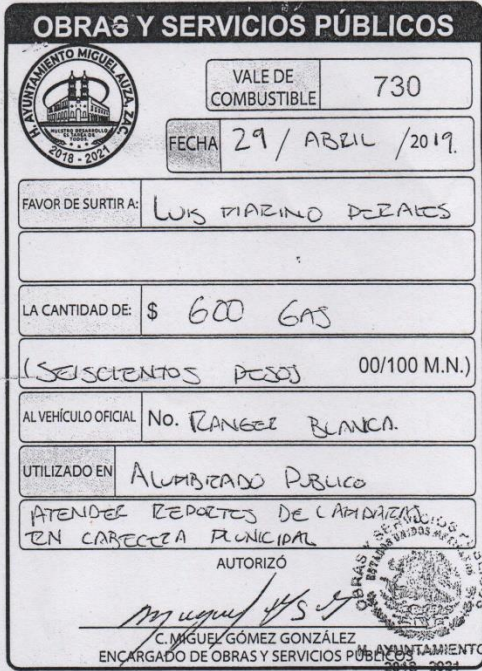 OBRAS Y SERVICIOS PÚBLICOS
H. AYUNTAMIENTO MIGUEL AUZA, ZAC.
NUESTRO DESARROLLO
ES TAREA DE
TODOS
2018 - 2021
VALE DE
COMBUSTIBLE
730
FECHA 29 / ABRIL / 2019.
FAVOR DE SURTIR A: LUIS MARINO PERALES
LA CANTIDAD DE: $ 600 GAS
(SEISCIENTOS PESOS 00/100 M.N.)
AL VEHÍCULO OFICIAL No. RANGER BLANCA.
UTILIZADO EN ALUMBRADO PUBLICO
ATENDER REPORTES DE LAMPARAS
EN CABECERA MUNICIPAL
AUTORIZÓ
C. MIGUEL GÓMEZ GONZÁLEZ
ENCARGADO DE OBRAS Y SERVICIOS PÚBLICOS
OBRAS Y SERVICIOS PÚBLICOS
ESTADOS UNIDOS MEXICANOS
H. AYUNTAMIENTO
2018 2021